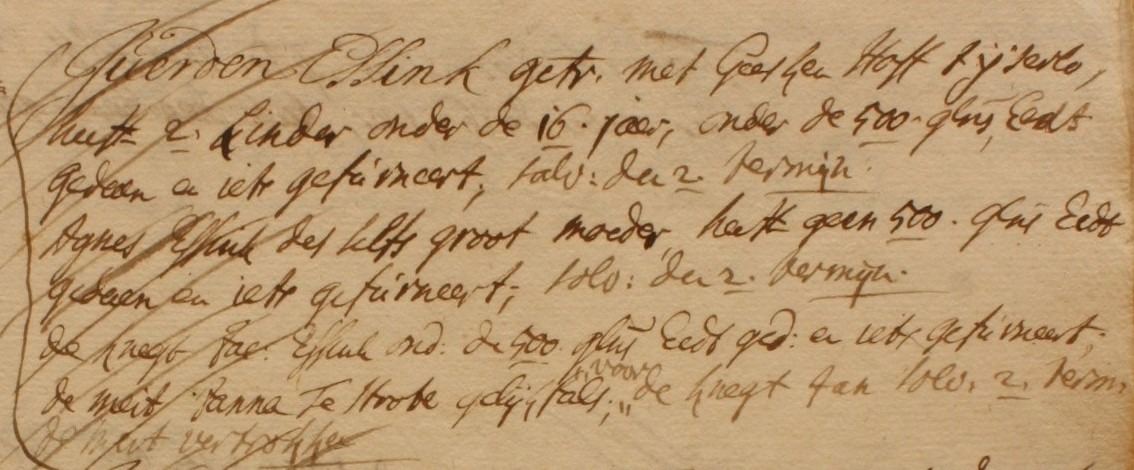 Juerden Essink getr. met Geesken Hoff
heeft 2. kinder onder de 16. jaer, onder de 500. glns, Eedt
gedaen en iets gefurneert; solv: den 2. termijn.
Agnes Essink des selfs groot moeder, heeft geen 500. glns Eedt
gedaen en iets gefurneert; solv: den 2. termijn.
de knegt Essink ond: de 500 glns Eedt ged: en iets gefurneert;
de meit Janna Te gelijk fals; „ voor de knegt Jan solv. 2. term:
de meit vertrokken